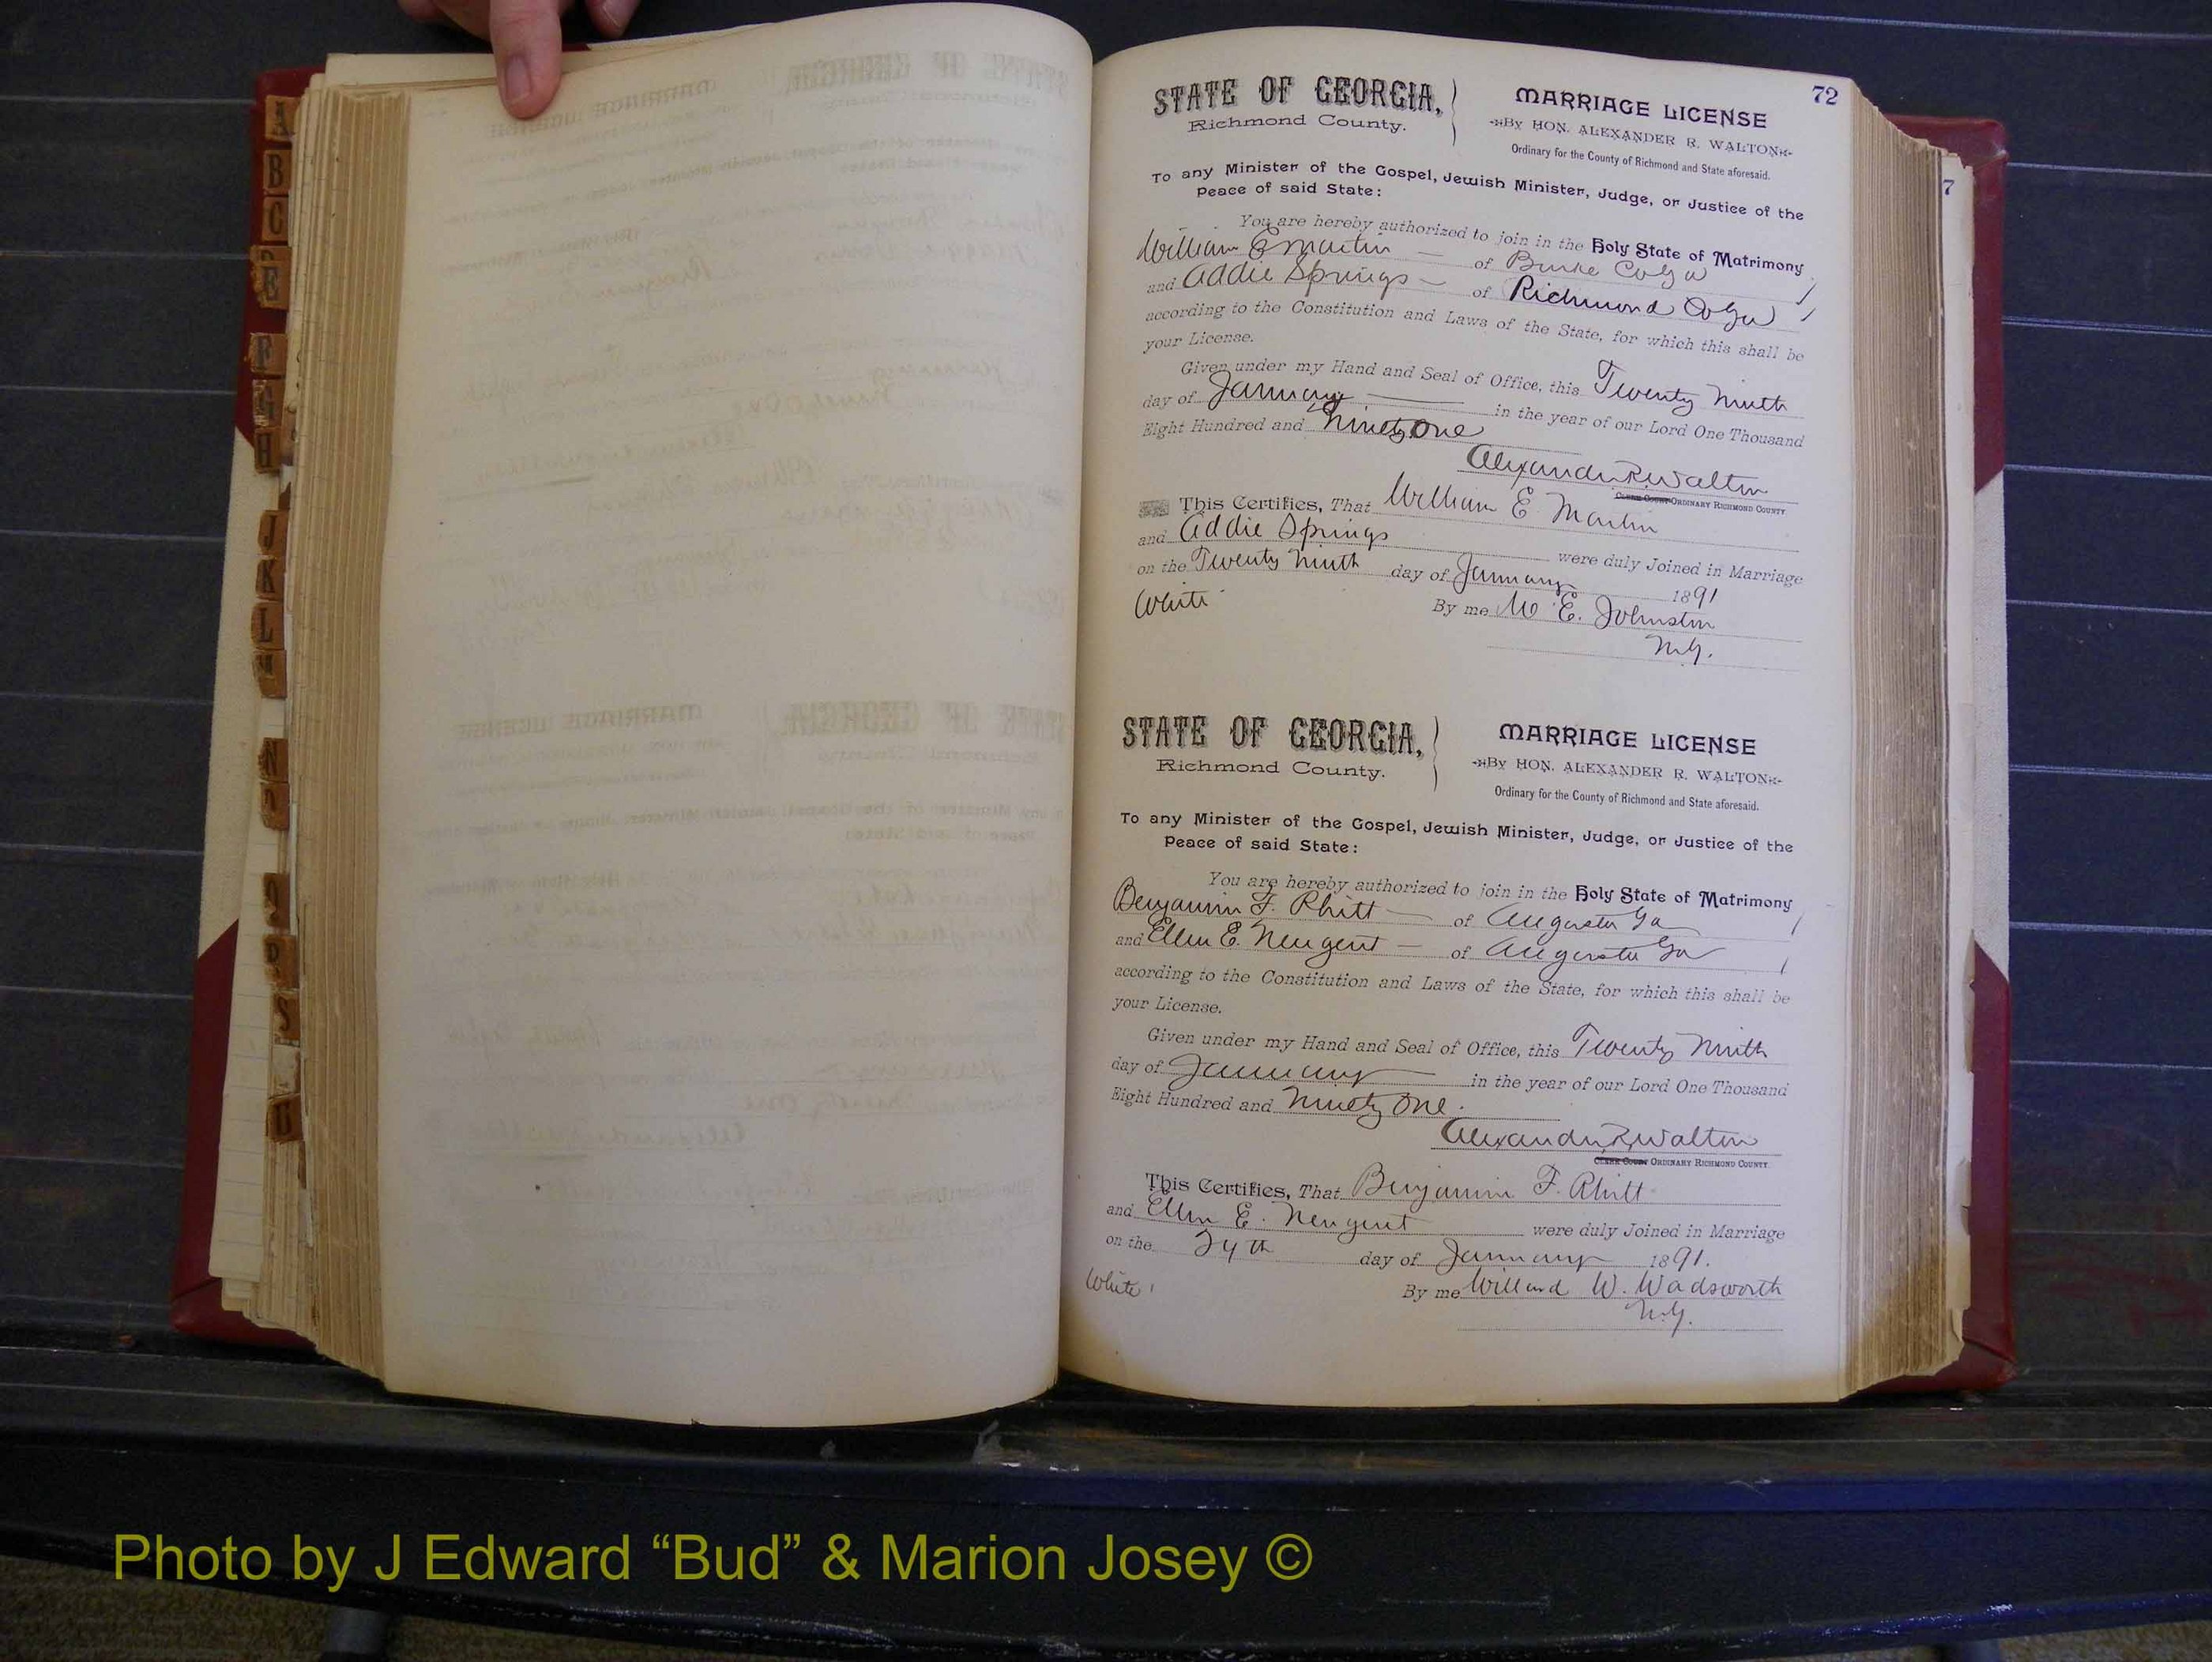 A
B
C
E
F
G
H
J
K
L
N
P
S
72
7
STATE OF GEORGIA,
Richmond County.
MARRIAGE LICENSE
By HON. ALEXANDER R. WALTON
Ordinary for the County of Richmond and State aforesaid.
To any Minister of the Gospel, Jewish Minister, Judge, or Justice of the
Peace of said State:
You are hereby authorized to join in the Holy State of Matrimony
William E Martin of Burke Co Ga
and Addie Springs of Richmond Co Ga
according to the Constitution and Laws of the State, for which this shall be
your License.
Given under my Hand and Seal of Office, this Twenty Ninth
day of January in the year of our Lord One Thousand
Eight Hundred and Ninety One
Alexander R. Walton
Clerk Court ORDINARY RICHMOND COUNTY.
This Certifies, That William E Martin
and Addie Springs were duly Joined in Marriage
on the Twenty Ninth day of January 1891
White By me W E. Johnston
STATE OF GEORGIA,
Richmond County.
MARRIAGE LICENSE
By HON. ALEXANDER R. WALTON
Ordinary for the County of Richmond and State aforesaid.
To any Minister of the Gospel, Jewish Minister, Judge, or Justice of the
Peace of said State:
You are hereby authorized to join in the Holy State of Matrimony
Benjamin F. of Augusta Ga
and Ellen E. Neugent of Augusta Ga
according to the Constitution and Laws of the State, for which this shall be
your License.
Given under my Hand and Seal of Office, this Twenty Ninth
day of January in the year of our Lord One Thousand
Eight Hundred and Ninety One.
Alexander R. Walton
Clerk Court ORDINARY RICHMOND COUNTY.
This Certifies, That Benjamin F.
and Ellen E. Neugent were duly Joined in Marriage
on the day of January 1891.
White By me Willard W. Wadsworth
Photo by J Edward “Bud” & Marion Josey ©